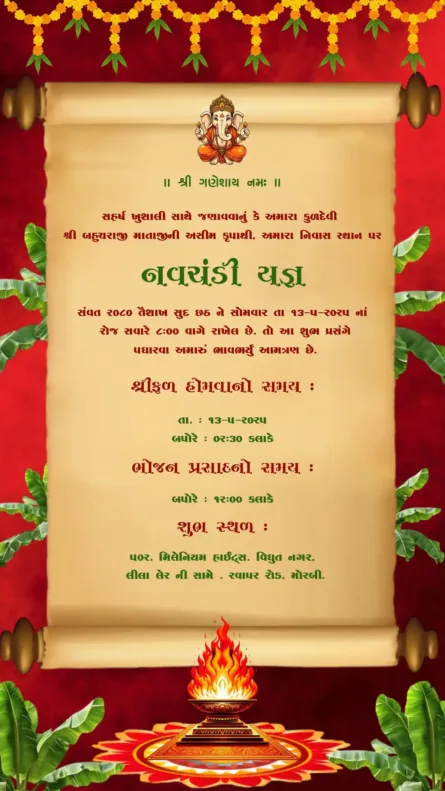 ॥ શ્રી ગણેશાય નમઃ ॥
સહર્ષ ખુશાલી સાથે જણાવવાનું કે અમારા કુળદેવી
શ્રી બહુચરાજી માતાજીની અસીમ કૃપાથી, અમારા નિવાસ સ્થાન પર
નવચંડી યજ્ઞ
સંવત ૨૦૮૦ વૈશાખ સુદ છઠ ને સોમવાર તા ૧૩-૫-૨૦૨૫ નાં
રોજ સવારે ૮:૦૦ વાગે રાખેલ છે. તો આ શુભ પ્રસંગે
પધારવા અમારું ભાવભર્યું આમત્રણ છે.
શ્રીફળ હોમવાનો સમય :
તા. : ૧૩-૫-૨૦૨૫
બપોરે : ૦૨:૩૦ કલાકે
ભોજન પ્રસાદનો સમય :
બપોરે : ૧૨:૦૦ કલાકે
શુભ સ્થળ :
૫૦૨. મિલેનિયમ હાઈટ્સ. વિધુત નગર.
લીલા લેર ની સામે . રવાપર રોડ. મોરબી.